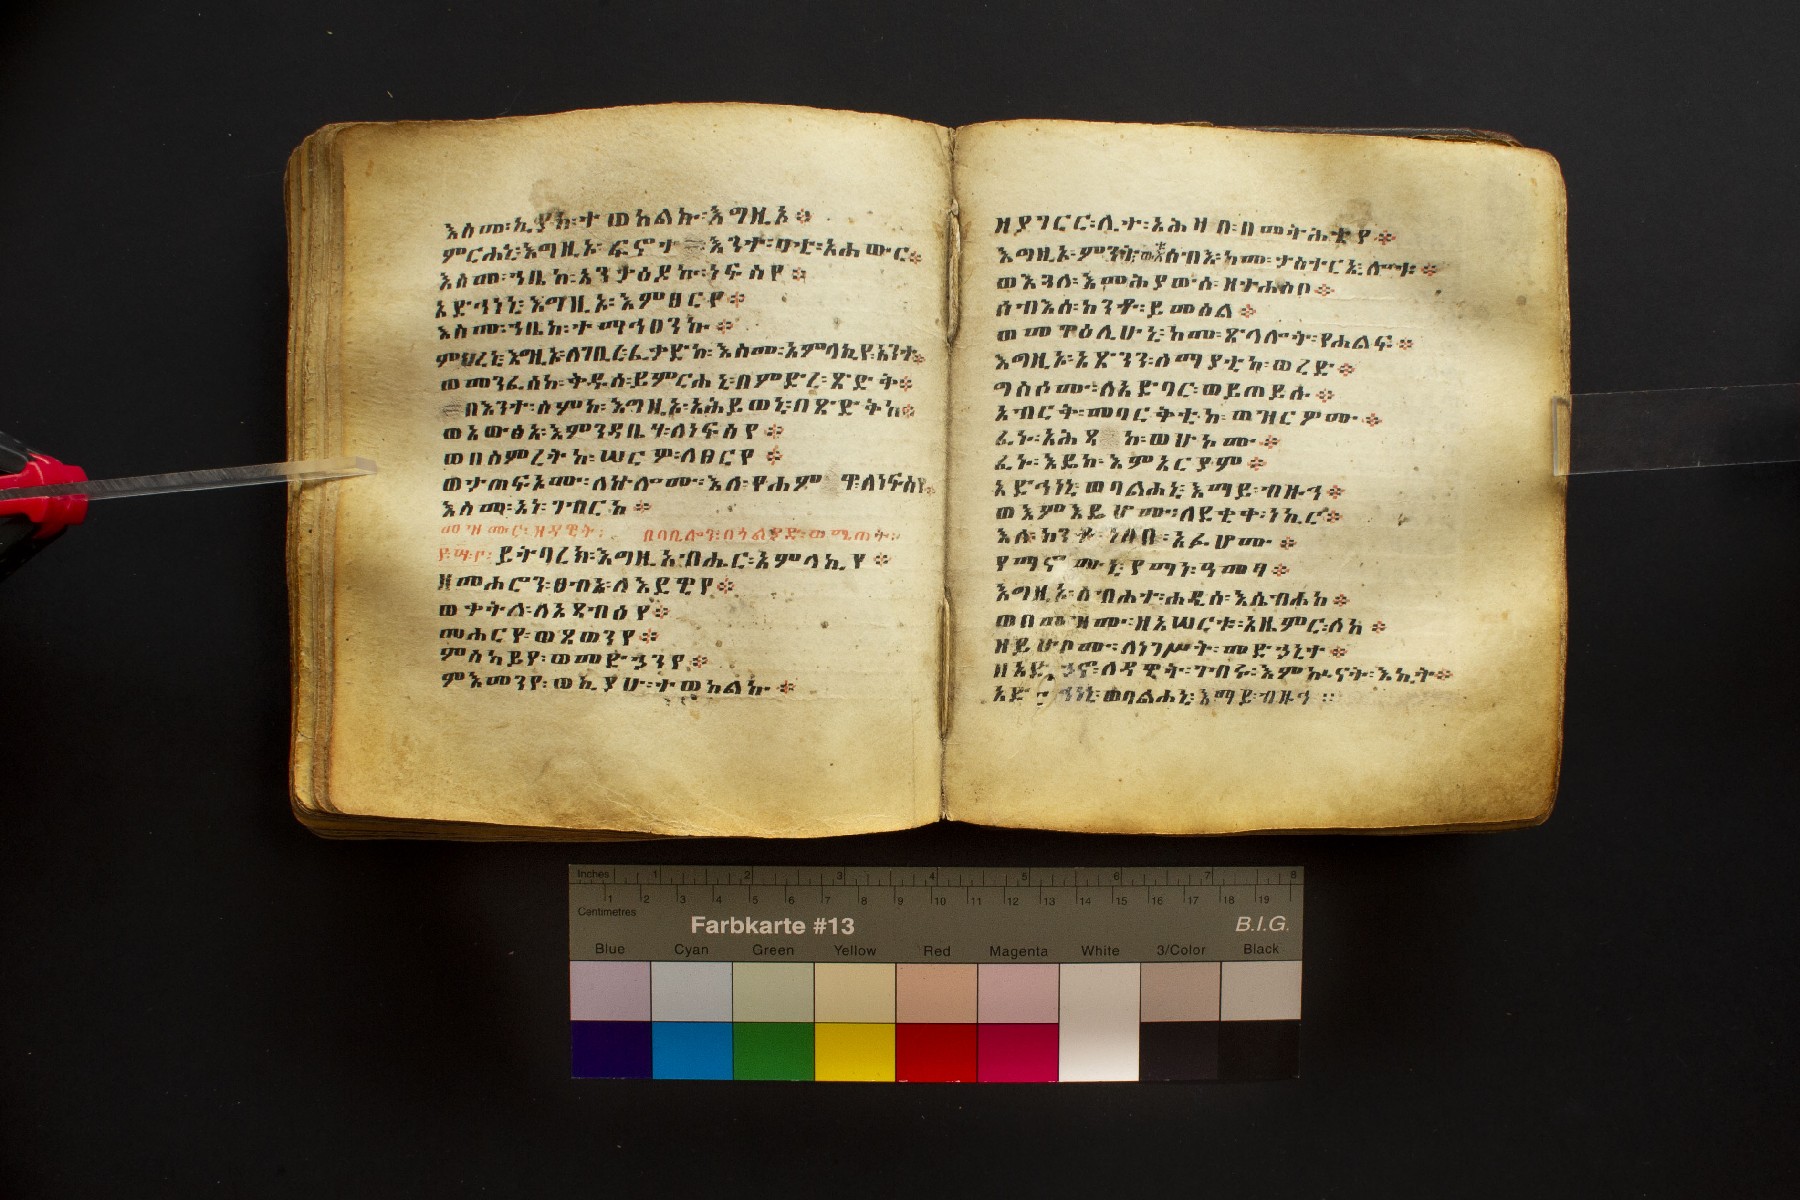 እስመ፡ኪያከ፡ተወከልኩ፡እግዚኦ፨
ምርሐኒ፡እግዚኦ፡ፍኖተ፡እንተ፡ባቲ፡አሐውር፨
እስመ፡ኀቤከ፡አንቃዕደኩ፡ነፍስየ፨
አድኅነኒ፡እግዚኦ፡እምፀርየ፨
እስመ፡ኀቤከ፡ተማኅፀንኩ፨
ምህረኒ፡እግዚኦ፡ለገቢረ፡ፈቃድከ፡እስመ፡አምላኪየ፡አንተ፨
ወመንፈስከ፡ቅዱስ፡ይምርሐኒ፡በምድረ፡ጽድቅ፨
በእንተ፡ስምከ፡እግዚኦ፡አሕይወኒ፡በጽድቅከ፨
ወአውፅኣ፡እምንዳቤሃ፡ለነፍስየ፨
ወበስምረትከ፡ሠርዎ፡ለፀርየ፨
ወታጠፍኦሙ፡ለኵሎሙ፡እለ፡የሐምዋ፡ለነፍስየ፨
እስመ፡አነ፡ገብርከ፨
መዝሙር፡ዘዳዊት፡ በባቢሎን፡በጎልያድ፡ወሚጠት፡
፻፵፫፡ ይትባረክ፡እግዚአብሔር፡አምላኪየ፨
ዘመሐሮን፡ፀብአ፡ለእደዊየ፨
ወቀትለ፡ለአጻብዕየ፨
መሐርየ፡ወጸወንየ፨
ምስካይየ፡ወመድኃንየ፨
ምእመንየ፡ወኪያሁ፡ተወከልኩ፨
ዘያገርር፡ሊተ፡አሕዛበ፡በመትሕቴየ፨
እግዚኦ፡ምንት፡ውእ፡ሰብእ፡ከመ፡ታስተርኢ፡ሎቱ፨
ወእጓለ፡እመሕያው፡ከመ፡ዘተሐስቦ፨
ሰብእሰ፡ከንቶ፡ይመስል፨
ወመዋዕሊሁኒ፡ከመ፡ጽላሎት፡የሐልፍ፨
እግዚኦ፡አጽንን፡ሰማያቲከ፡ወረድ፨
ግስሶሙ፡ለአድባር፡ወይጠይሱ፨
አብርቅ፡መባርቅቲከ፡ወዝርዎሙ፨
ፈኑ፡አሕጻከ፡ወሁኮሙ፨
ፈኑ፡እዴከ፡እምአርያም፨
አድኅነኒ፡ወባልሐኒ፡እማይ፡ብዙኅ፨
ወእምእዴሆሙ፡ለደቂቀ፡ነኪር፨
እለ፡ከንቶ፡ነበበ፡አፉሆሙ፨
የማኖሙኒ፡የማነ፡ዓመፃ፨
እግዚኦ፡ስብሐተ፡ሐዲሰ፡እሴብሐከ፨
ወበመዝሙር፡ዘአሠርቱ፡እዜምር፡ለከ፨
ዘይሁቦሙ፡ለነገሥት፡መድኃኒተ፨
ዘአድኃኖ፡ለዳዊት፡ገብሩ፡እምኲናት፡እኪት፨
አድኅነኒ፡ወባልሐኒ፡እማይ፡ብዙኅ፨
Inches 1 2 3 4 5 6 7 8
Centimetres 1 2 3 4 5 6 7 8 9 10 11 12 13 14 15 16 17 18 19
Farbkarte #13 B.I.G.
Blue Cyan Green Yellow Red Magenta White 3/Color Black